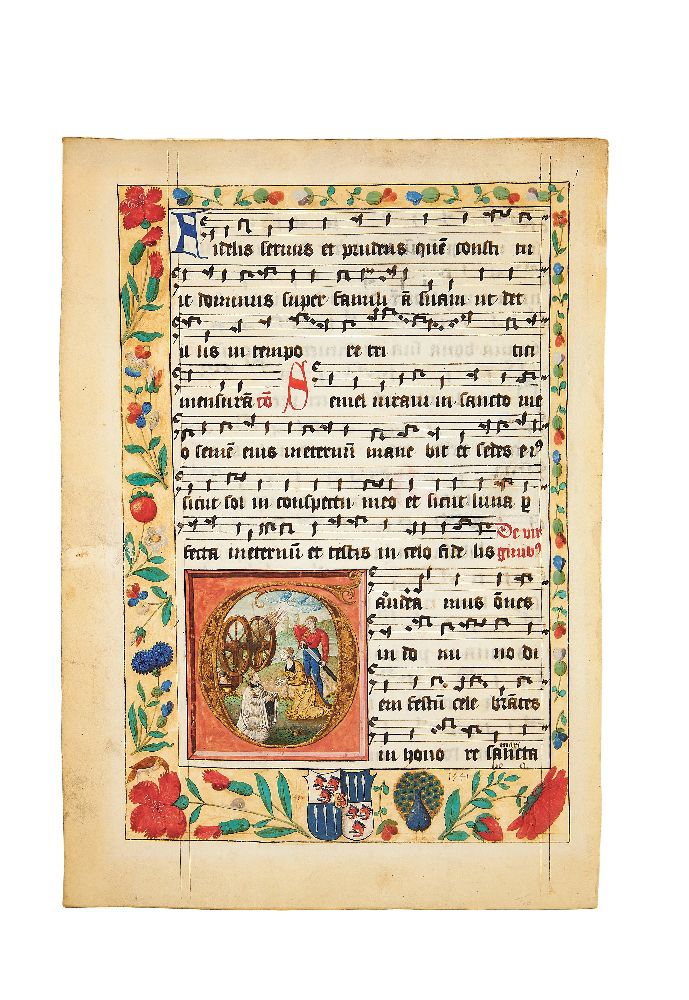 Fidelis servus et prudens quē consti tu
it dominus super famili ā suam ut det
il lis in tempo re tri tici
mensurā Cō Semel iuravi in sancto me
o semē eius ineternū mane bit et sedes eiꝰ
sicut sol in conspectu meo et sicut luna ꝑ
fecta ineternū et testis in celo fide lis De vir
ginibꝰ
Gaudea mus ōnes
in do mi no di
em festū cele brātes
in hono re sancta